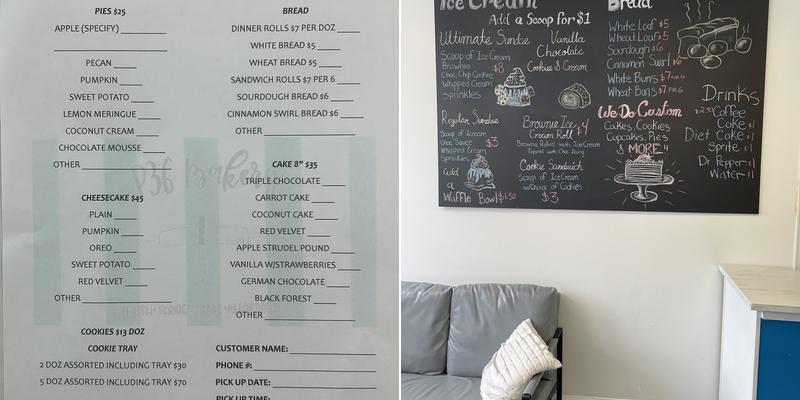 PIES $25
APPLE (SPECIFY)
PECAN
PUMPKIN
SWEET POTATO
LEMON MERINGUE
COCONUT CREAM
CHOCOLATE MOUSSE
OTHER
CHEESECAKE $45
PLAIN
PUMPKIN
OREO
SWEET POTATO
RED VELVET
OTHER
COOKIES $13 DOZ
COOKIE TRAY
2 DOZ ASSORTED INCLUDING TRAY $30
5 DOZ ASSORTED INCLUDING TRAY $70
BREAD
DINNER ROLLS $7 PER DOZ
WHITE BREAD $5
WHEAT BREAD $5
SANDWICH ROLLS $7 PER 6
SOURDOUGH BREAD $6
CINNAMON SWIRL BREAD $6
OTHER
CAKE 8" $35
TRIPLE CHOCOLATE
CARROT CAKE
COCONUT CAKE
RED VELVET
APPLE STRUDEL POUND
VANILLA W/STRAWBERRIES
GERMAN CHOCOLATE
BLACK FOREST
OTHER
CUSTOMER NAME:
PHONE #:
PICK UP DATE:
PICK UP TIME:
P36 Bakery
Ice Cream
Add a Scoop for $1
Ultimate Sundae
Scoop of Ice Cream
Brownie
Choc. Chip Cookie
Whipped Cream
Sprinkles
$8
Vanilla
Chocolate
Cookies & Cream
Regular Sundae
Scoop of Icecream
Choc Sauce
Whipped Cream
Sprinkles
$3
add
a
Waffle Bowl $1.50
Brownie Ice
Cream Roll $4
Brownie Rolled with Ice Cream
Topped with Choc Icing
Cookie Sandwich
Scoop of Ice Cream
w/Choice of Cookies
$3
Bread
White Loaf $5
Wheat Loaf $5
Sourdough $6
Cinnamon Swirl $6
White Buns $7 FOR 6
Wheat Buns $7 FOR 6
We Do Custom
Cakes, Cookies
Cupcakes, Pies
& MORE!!
Drinks
$2.50 Coffee
Coke $1
Diet Coke $1
Sprite $1
Dr Pepper $1
Water $1